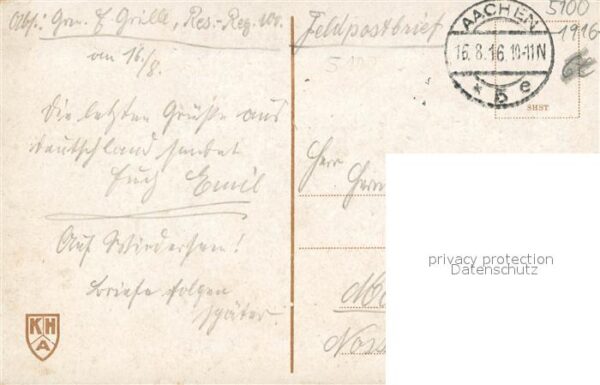 Abs.: Gren. E. Grille, Res.-Reg. 100.
am 16./8.
Die letzten Grüße aus
Deutschland sendet
Euch Emil
Auf Wiedersehen!
Briefe folgen
später.
Feldpostbrief
5100
AACHEN
16.8.16.10-11N
* 5 e
5100
1916
SHST
Herr
Herm
privacy protection
Datenschutz
KH
A